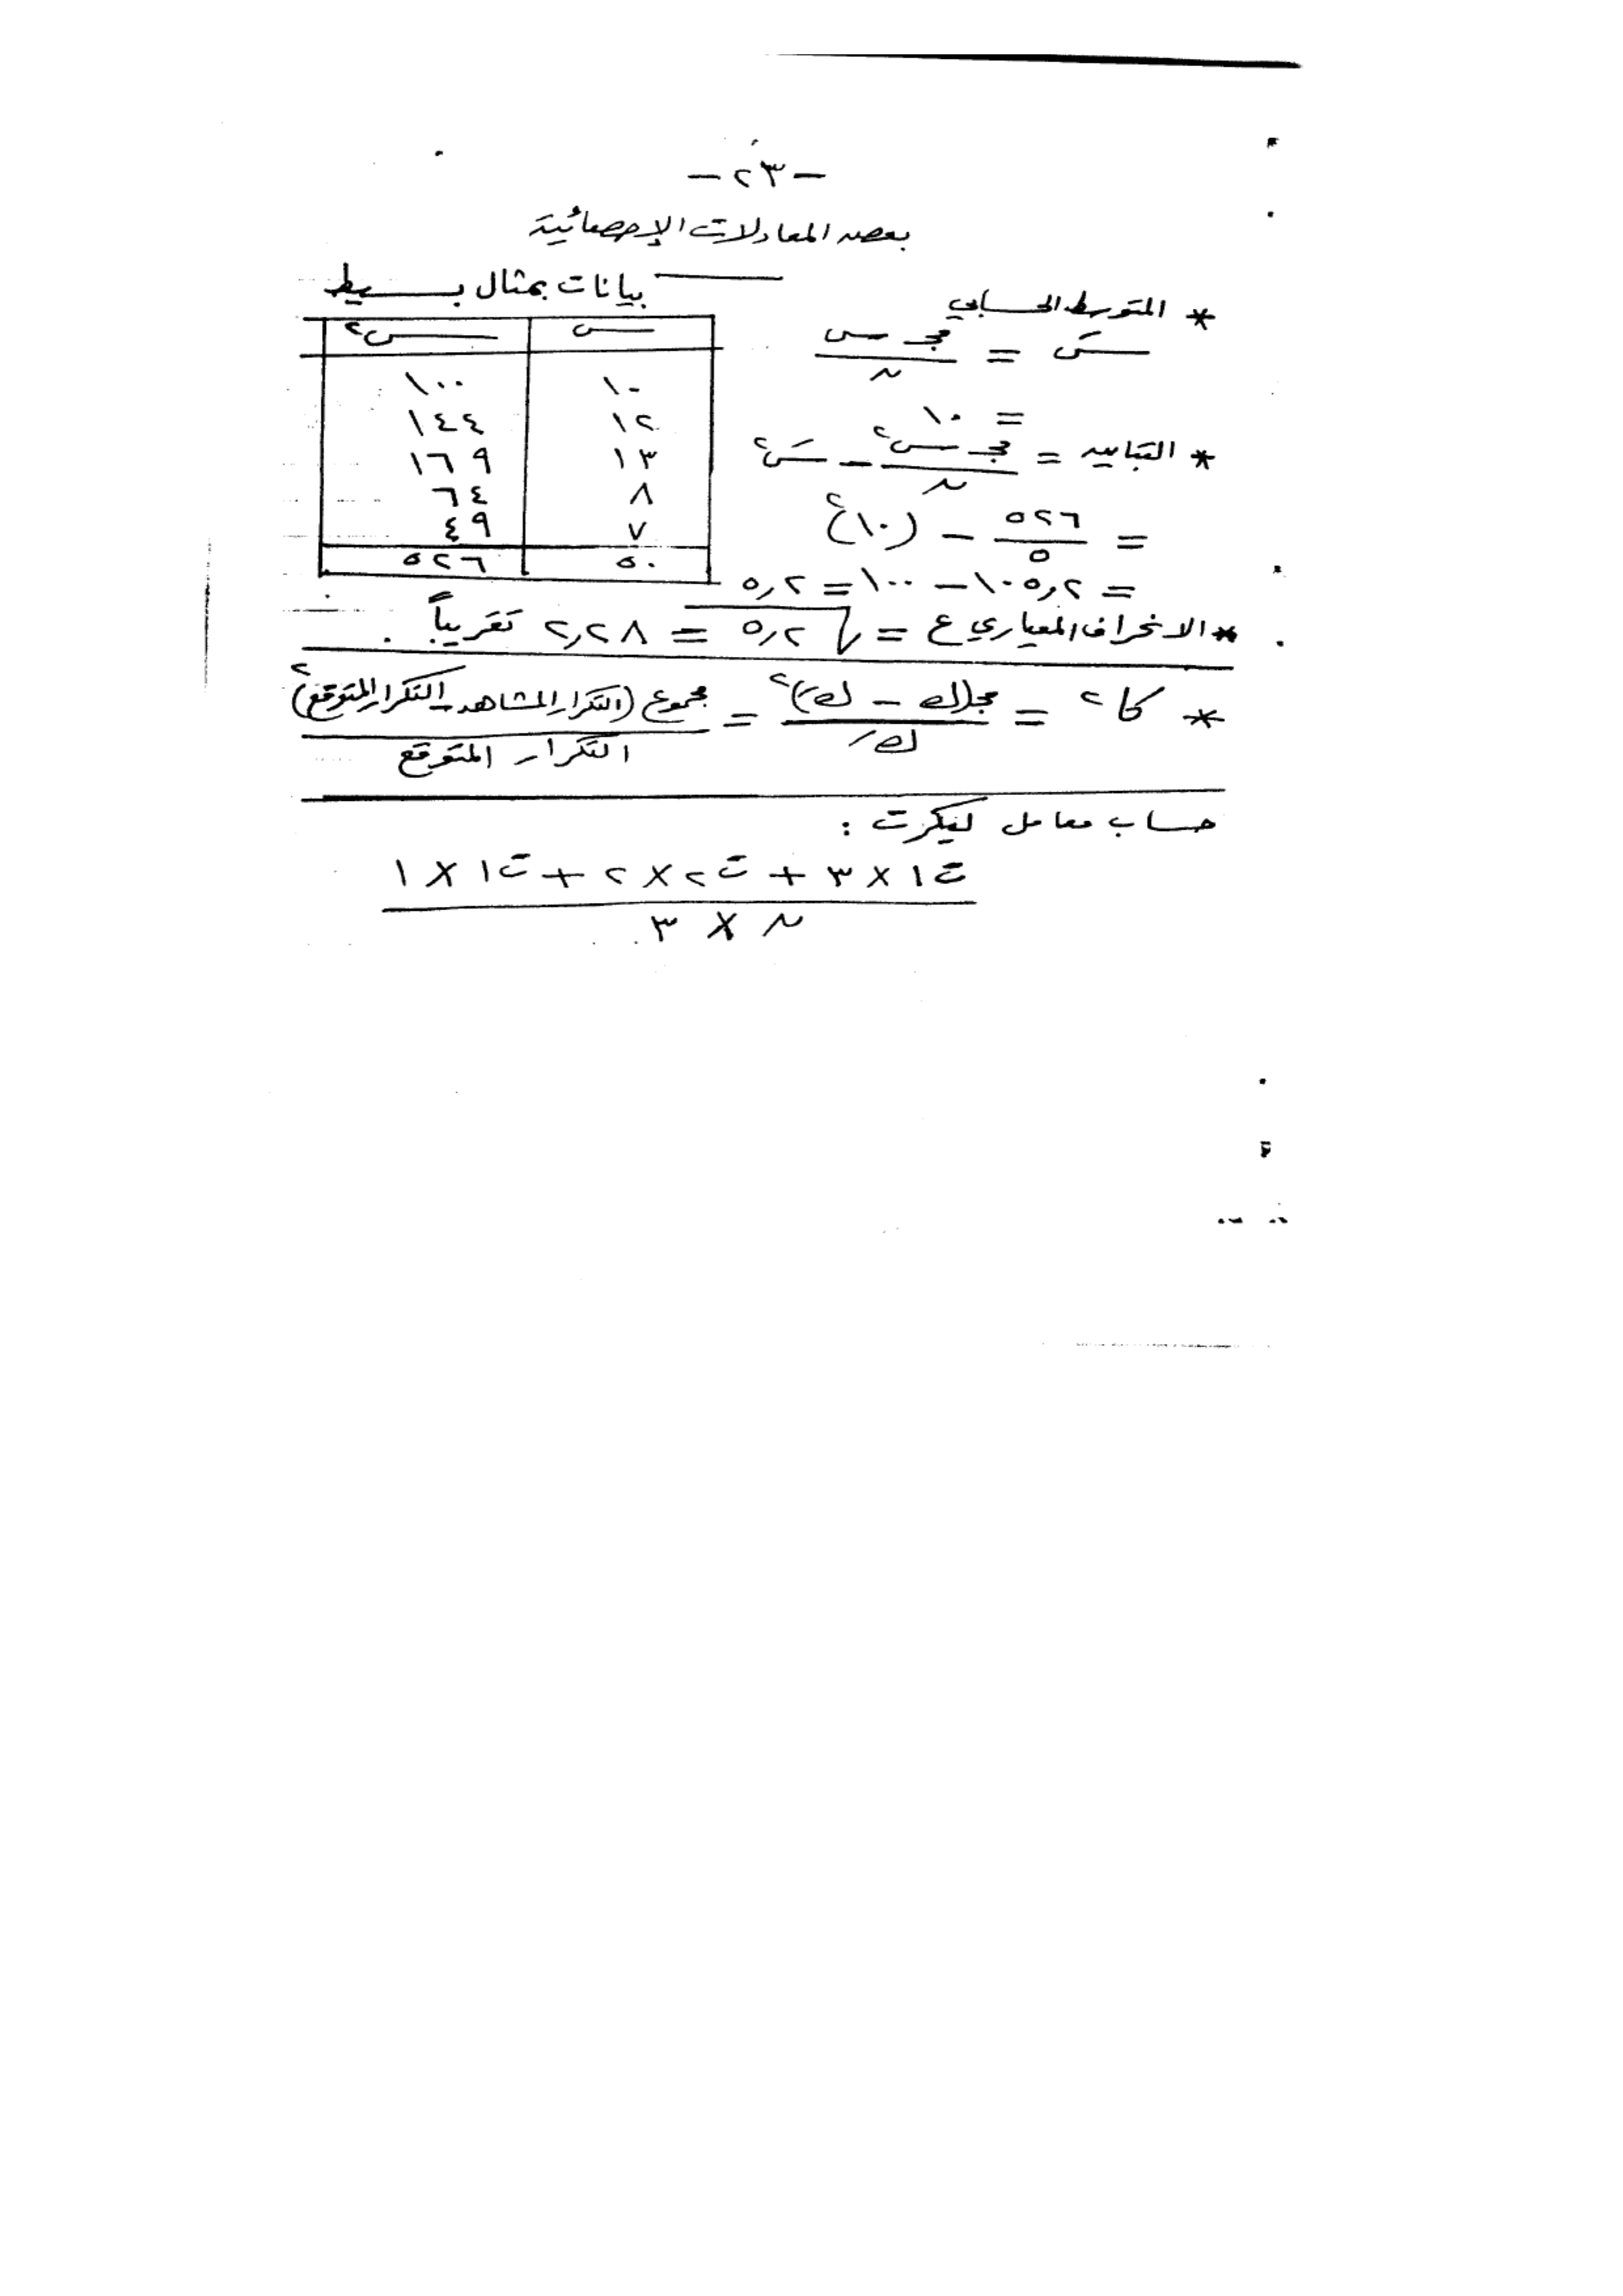 - ٢٣ -
بعض المعادلات الإحصائية
بيانات بمثال بسيط
س س٢
١٠ ١٠٠
١٢ ١٤٤
١٣ ١٦٩
٨ ٦٤
٧ ٤٩
٥٠ ٥٢٦
* المتوسط الحسابي
سَ = مجـ س / ن
= ١٠
* التباين = مجـ س٢ / ن - سَ٢
= ٥٢٦ / ٥ - (١٠)٢
= ١٠٥,٢ - ١٠٠ = ٥,٢
* الانحراف المعياري ع = √٥,٢ = ٢,٢٨ تقريباً .
* كا٢ = مجـ(ك - كَ)٢ / كَ = مجموع (التكرار المشاهد - التكرار المتوقع)٢ / التكرار المتوقع
حساب معامل ليكرت :
ت١ × ٣ + ت٢ × ٢ + ت١ × ١
ن × ٣